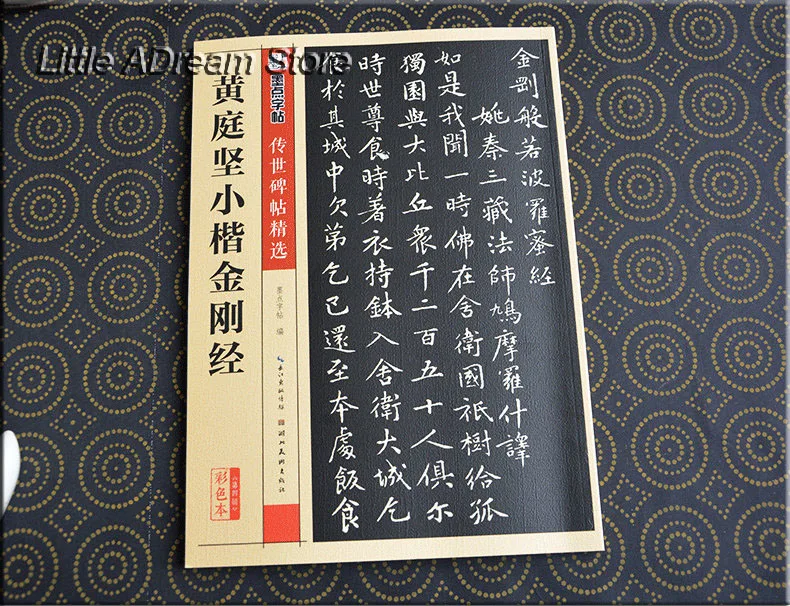 Little ADream Store
黄庭坚小楷金刚经
墨点字帖
传世碑帖精选
墨点字� 编
长江出版传媒
湖北美术出版社
彩色本
金剛般若波羅蜜經
姚秦三藏法師鳩摩羅什譯
如是我聞一時佛在舍衛國祇樹給孤
獨園與大比丘衆千二百五十人俱尒
時世尊食時著衣持鉢入舍衛大城乞
食於其城中次第乞已還至本處飯食